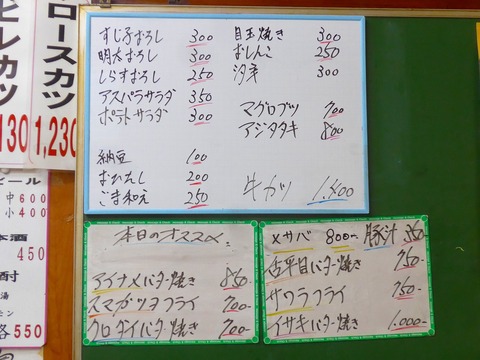 ヒレカツ
130
ロースカツ
1,230
すじ子おろし 300
明太おろし 300
しらすおろし 250
アスパラサラダ 350
ポテトサラダ 300
納豆 100
おひたし 200
ごま和え 250
目玉焼き 300
おしんこ 250
300
マグロブツ 700
アジタタキ 800
牛カツ 1,400
ビール
中600
小400
本酒
450
酎
湯
各550
本日のオススメ
アイナメバター焼き 850
スマガツヲフライ 700
クロダイバター焼き 700
〆サバ 800- 豚汁 350
舌平目バター焼き 750-
サワラフライ 750-
イサキバター焼き 1.000-